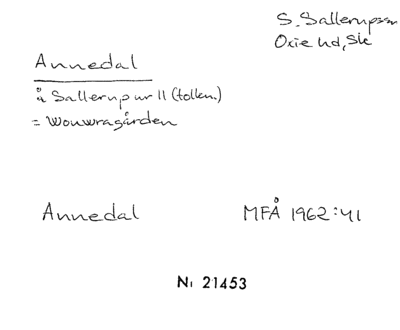 S. Sallerups sn
Oxie hd, Sk
Annedal
å Sallerup nr 11 (tolkn.)
= Wouwragården
Annedal MFÅ 1962:41
N: 21453